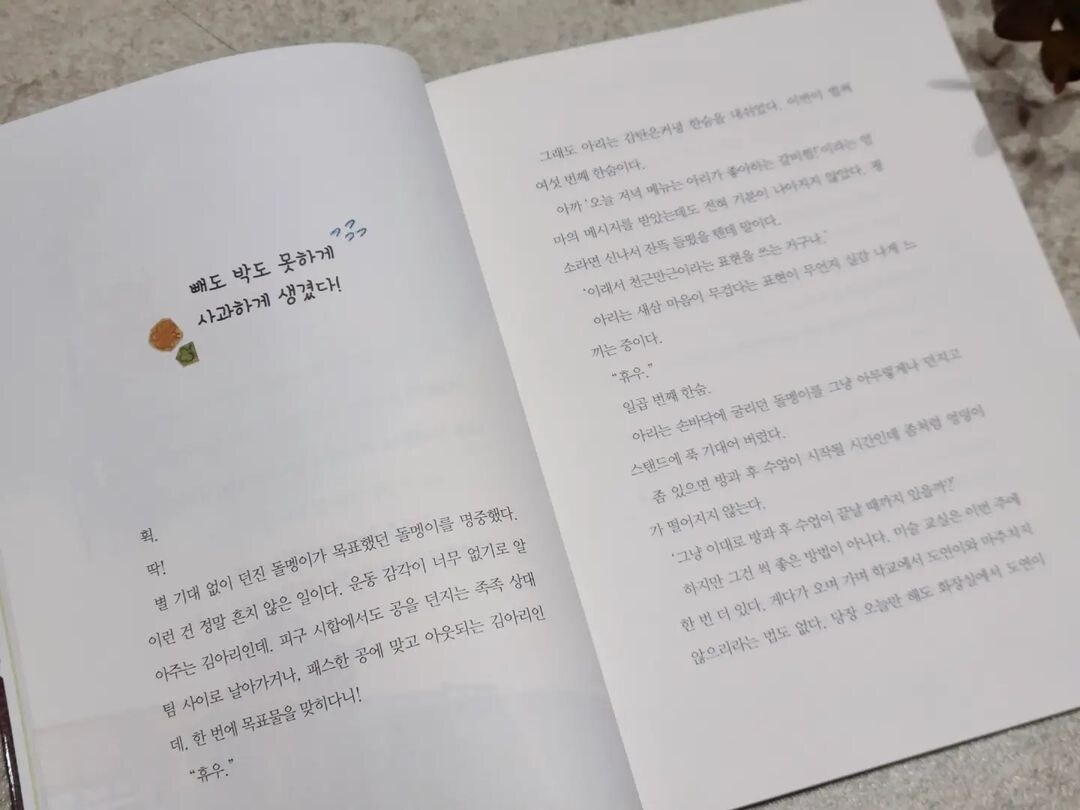 빼도 박도 못하게
사과하게 생겼다!
휙.
딱!
별 기대 없이 던진 돌멩이가 목표했던 돌멩이를 명중했다.
이런 건 정말 흔치 않은 일이다. 운동 감각이 너무 없기로 알
아주는 김아리인데. 피구 시합에서도 공을 던지는 족족 상대
팀 사이로 날아가거나, 패스한 공에 맞고 아웃되는 김아리인
데. 한 번에 목표물을 맞히다니!
“휴우.”
그래도 아리는 감탄은커녕 한숨을 내쉬었다. 이번이 벌써
여섯 번째 한숨이다.
아까 ‘오늘 저녁 메뉴는 아리가 좋아하는 갈비찜!’이라는 엄
마의 메시지를 받았는데도 전혀 기분이 나아지지 않았다. 평
소라면 신나서 잔뜩 들떴을 텐데 말이다.
‘이래서 천근만근이라는 표현을 쓰는 거구나.’
아리는 새삼 마음이 무겁다는 표현이 무언지 실감 나게 느
끼는 중이다.
“휴우.”
일곱 번째 한숨.
아리는 손바닥에 굴리던 돌멩이를 그냥 아무렇게나 던지고
스탠드에 푹 기대어 버렸다.
좀 있으면 방과 후 수업이 시작될 시간인데 좀처럼 엉덩이
가 떨어지지 않는다.
‘그냥 이대로 방과 후 수업이 끝날 때까지 있을까?’
하지만 그건 썩 좋은 방법이 아니다. 미술 교실은 이번 주에
한 번 더 있다. 게다가 오며 가며 학교에서 도연이와 마주치지
않으리라는 법도 없다. 당장 오늘만 해도 화장실에서 도연이